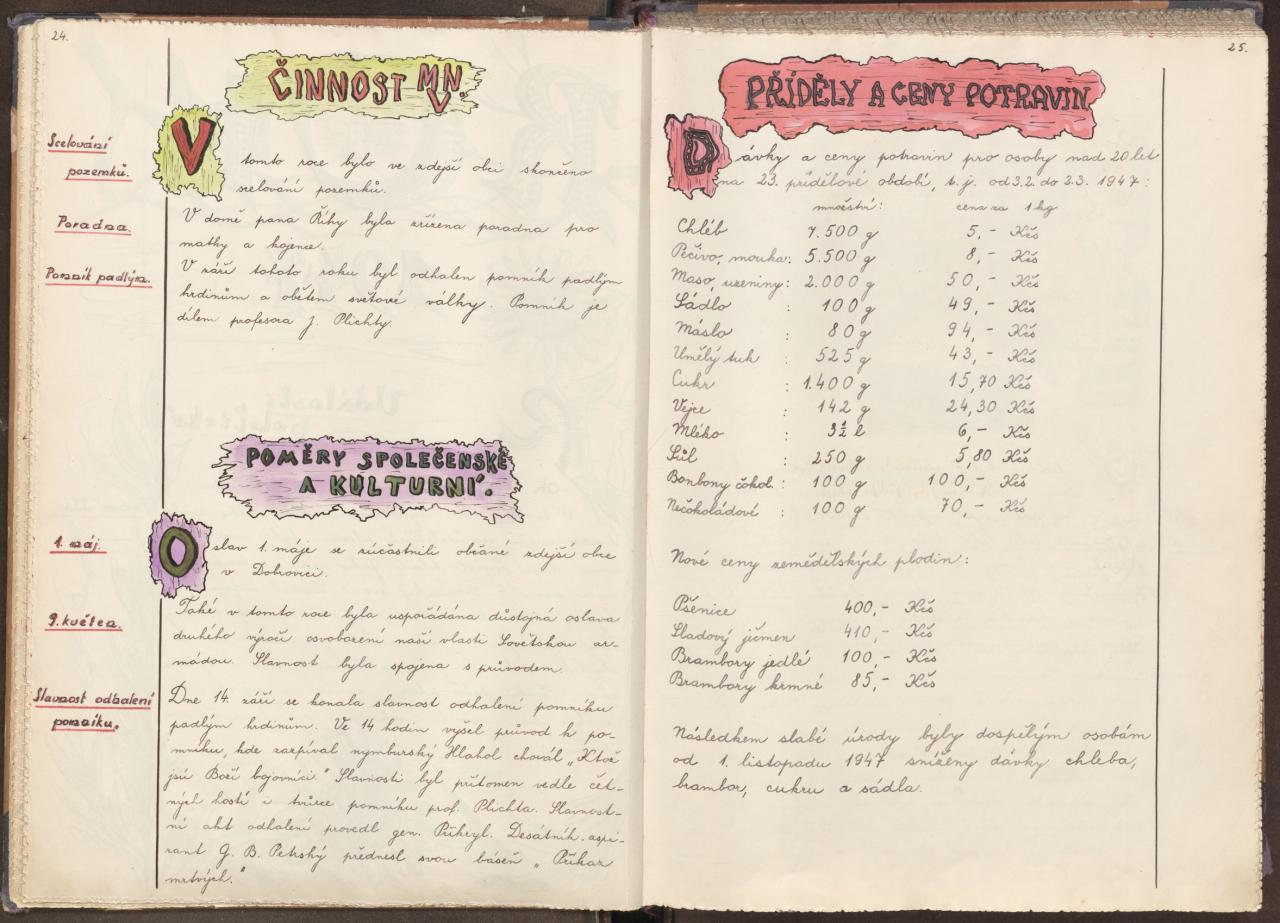 24.
ČINNOST MNV.
Scelování
pozemků.
V tomto roce bylo ve zdejší obci skončeno
scelování pozemků.
Poradna.
V domě pana Říhy byla zřízena poradna pro
matky a kojence.
Pomník padlým.
V září tohoto roku byl odhalen pomník padlým
hrdinům a obětem světové války. Pomník je
dílem profesora J. Plichty.
POMĚRY SPOLEČENSKÉ
A KULTURNÍ.
1. máj.
Oslav 1. máje se zúčastnili občané zdejší obce
v Dobrovici.
9. květen.
Také v tomto roce byla uspořádána důstojná oslava
druhého výročí osvobození naší vlasti Sovětskou ar-
mádou. Slavnost byla spojena s průvodem.
Slavnost odhalení
pomníku.
Dne 14. září se konala slavnost odhalení pomníku
padlým hrdinům. Ve 14 hodin vyšel průvod k po-
mníku, kde zazpíval nymburský Hlahol chorál "Ktož
jsú Boží bojovníci." Slavnosti byl přítomen vedle čet-
ných hostí i tvůrce pomníku prof. Plichta. Slavnost-
ní akt odhalení provedl gen. Přikryl. Desátník-aspi-
rant G. B. Petrský přednesl svou báseň "Příkaz
mrtvých."
25.
PŘÍDĚLY A CENY POTRAVIN
Dávky a ceny potravin pro osoby nad 20 let
na 23. přídělové období, t. j. od 3.2. do 2.3. 1947:
množství: cena za 1 kg
Chléb 7.500 g 5,- Kčs
Pečivo, mouka: 5.500 g 8,- Kčs
Maso, uzeniny: 2.000 g 50,- Kčs
Sádlo : 100 g 49,- Kčs
Máslo : 80 g 94,- Kčs
Umělý tuk : 525 g 43,- Kčs
Cukr : 1.400 g 15,70 Kčs
Vejce : 142 g 24,30 Kčs
Mléko : 3½ l 6,- Kčs
Sůl : 250 g 5,80 Kčs
Bonbony čokol. : 100 g 100,- Kčs
Nečokoládové : 100 g 70,- Kčs
Nové ceny zemědělských plodin:
Pšenice 400,- Kčs
Sladový ječmen 410,- Kčs
Brambory jedlé 100,- Kčs
Brambory krmné 85,- Kčs
Následkem slabé úrody byly dospělým osobám
od 1. listopadu 1947 sníženy dávky chleba,
brambor, cukru a sádla.